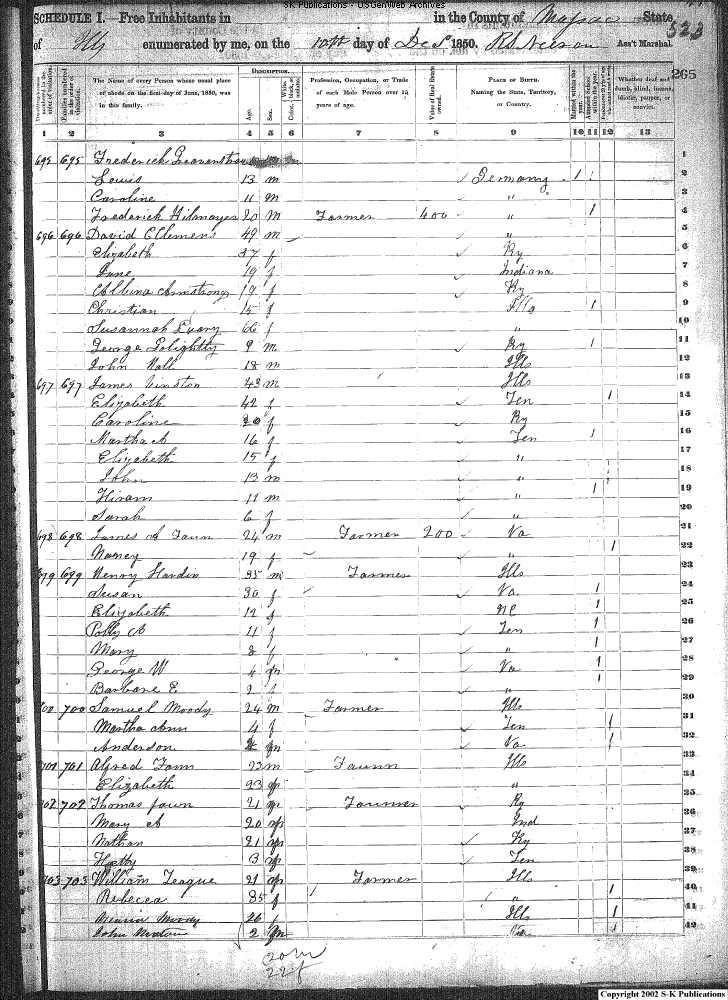 S-K Publications - USGenWeb Archives
SCHEDULE I. Free Inhabitants in in the County of Massac State 523
of Ills enumerated by me, on the 10th day of Dec 1850. Ass't Marshal.
265
DESCRIPTION.
The Name of every Person whose usual place of abode on the first day of June, 1850, was in this family.
Age.
Sex.
Profession, Occupation, or Trade of each Male Person over 15 years of age.
Value of Real Estate owned.
PLACE OF BIRTH. Naming the State, Territory, or Country.
Whether deaf and dumb, blind, insane, idiotic, pauper, or convict.
1 2 3 4 5 6 7 8 9 10 11 12 13
695 695 Frederick 1
Lewis 13 m Germany 1 2
Caroline 11 m " 3
Frederick Hilmayer 20 m Farmer 400 " 1 4
696 696 David C Clemens 49 m " 5
Elizabeth 37 f Ky 6
Jane 19 f Indiana 7
Albina Armstrong 17 f Ky 8
Christian 15 f Ills 1 9
Susannah 66 f " 10
George Golightly 9 m Ky 1 11
John Hall 18 m Ills 12
697 697 James Vinston 43 m Ills 13
Elizabeth 42 f Ten 1 14
Caroline 20 f Ky 15
Martha A 16 f Ten 1 16
Elizabeth 15 f " 17
John 13 m " 18
Hiram 11 m " 1 19
Sarah 6 f " 20
698 698 James A Faun 24 m Farmer 200 Va 21
Nancy 19 f " 1 22
699 Henry Hardin 35 m Farmer Ills 23
Susan 30 f Va 1 24
Elizabeth 12 f NC 1 25
Polly A 11 f Ten 1 26
Mary 8 f " 1 27
George W 4 m Va 1 28
Barbare E 2 f " 29
700 700 Samuel Moody 24 m Farmer Ills 30
Martha Ann 4 f Ten 1 31
Anderson m Va 1 32
701 701 Alfred Faun 23 m Ills 33
Elizabeth 23 " 34
702 702 Thomas Faun 21 Ky 35
Mary A 20 Ind 36
Nathan 21 Ky 37
3 Ten 38
703 703 William League 21 Farmer Ills 39
Rebecca 35 f " 1 40
Moody 26 f Ills 1 41
John 2 m Va 1 42
20 m
22 f
Copyright 2002 S-K Publications